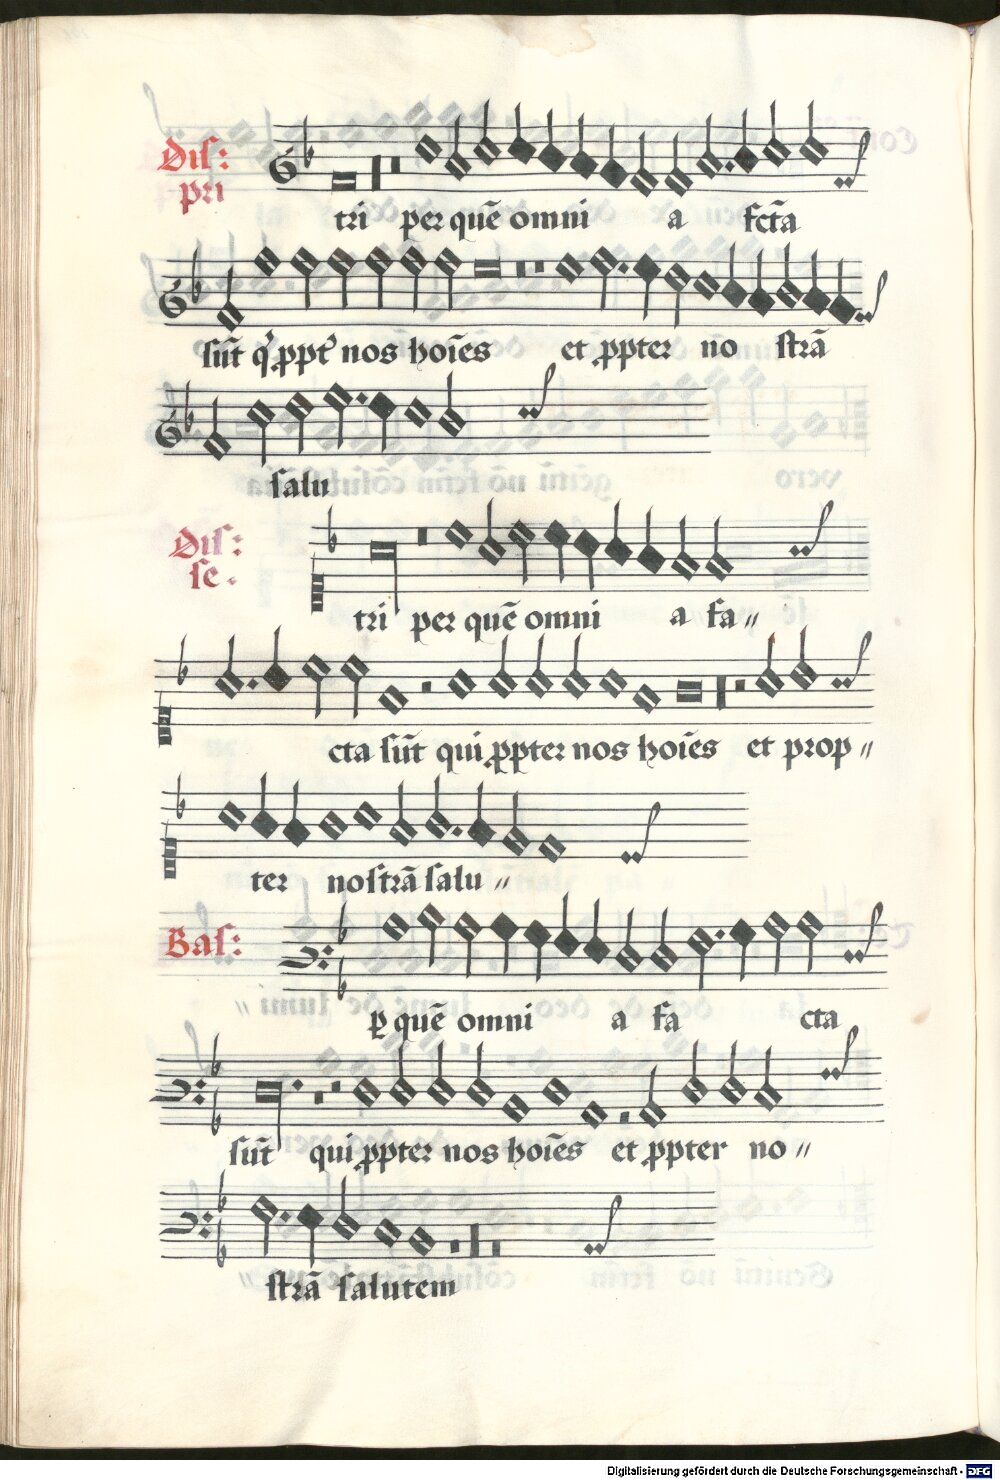 Diſ:
pri
tri per quē omni a fcta
ſūt q ppt nos hoīes et ppter no ſtrā
ſalu
Diſ:
ſe.
tri per quē omni a fa〃
cta ſūt qui ppter nos hoīes et prop〃
ter noſtrā ſalu〃
Baſ:
ꝑ quē omni a fa cta
ſūt qui ppter nos hoīes et ppter no〃
ſtrā ſalutem
Digitalisierung gefördert durch die Deutsche Forschungsgemeinschaft - DFG